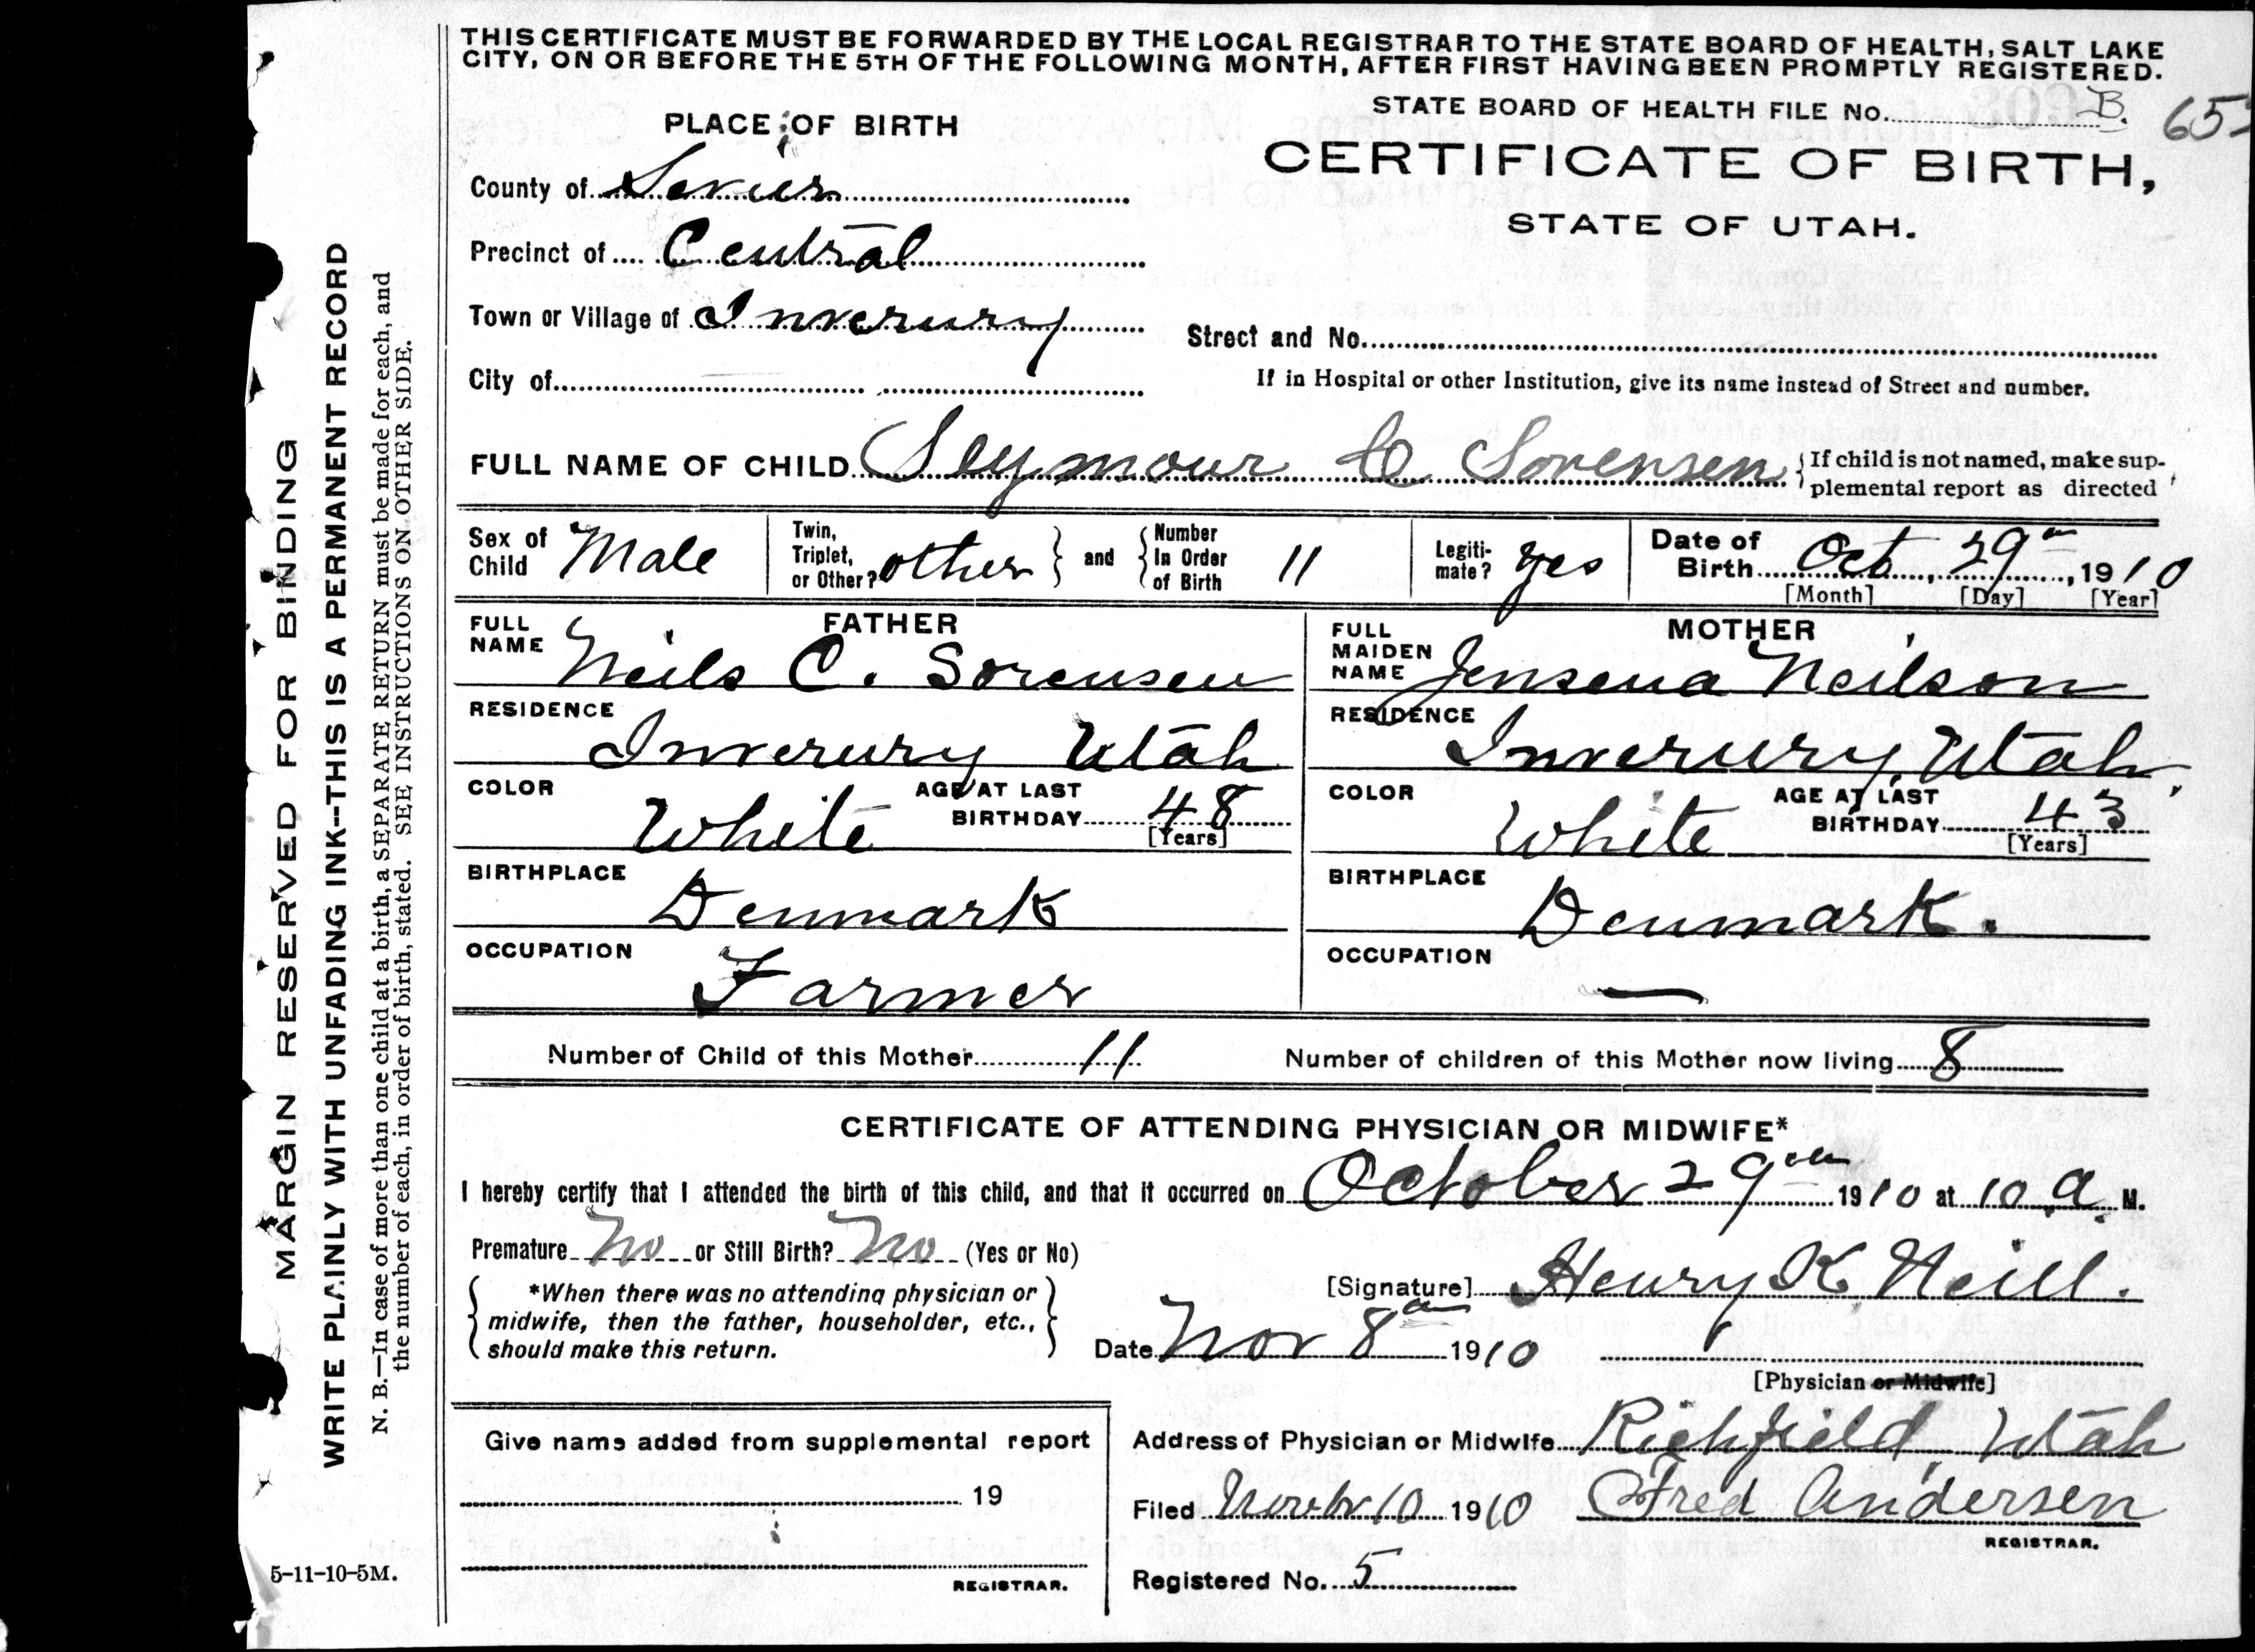 THIS CERTIFICATE MUST BE FORWARDED BY THE LOCAL REGISTRAR TO THE STATE BOARD OF HEALTH, SALT LAKE
CITY, ON OR BEFORE THE 5TH OF THE FOLLOWING MONTH, AFTER FIRST HAVING BEEN PROMPTLY REGISTERED.
STATE BOARD OF HEALTH FILE No. B. 65
PLACE OF BIRTH
CERTIFICATE OF BIRTH,
STATE OF UTAH.
County of Sevier
Precinct of Central
Town or Village of Inverury
Street and No.
City of
If in Hospital or other Institution, give its name instead of Street and number.
FULL NAME OF CHILD Seymour Sorensen { If child is not named, make sup-
plemental report as directed
Sex of Child Male Twin, Triplet, or Other? other } and { Number In Order of Birth 11 Legiti-mate? yes Date of Birth Oct, 29th, 1910
[Month] [Day] [Year]
FATHER
FULL NAME Neils C. Sorensen
RESIDENCE
Inverury Utah
COLOR White AGE AT LAST BIRTHDAY 48
[Years]
BIRTHPLACE
Denmark
OCCUPATION
Farmer
MOTHER
FULL MAIDEN NAME Jensena Neilson
RESIDENCE
Inverury, Utah.
COLOR White AGE AT LAST BIRTHDAY 43
[Years]
BIRTHPLACE
Denmark.
OCCUPATION
—
Number of Child of this Mother 11 Number of children of this Mother now living 8
CERTIFICATE OF ATTENDING PHYSICIAN OR MIDWIFE*
I hereby certify that I attended the birth of this child, and that it occurred on October 29th 1910 at 10 a. M.
Premature No or Still Birth? No (Yes or No)
*When there was no attending physician or
midwife, then the father, householder, etc.,
should make this return.
[Signature] Henry K Neill.
Date Nov 8th 1910
[Physician or Midwife]
Give name added from supplemental report
19
REGISTRAR.
Address of Physician or Midwife Richfield, Utah
Filed Novbr 10 1910 Fred Andersen
REGISTRAR.
Registered No. 5
MARGIN RESERVED FOR BINDING
WRITE PLAINLY WITH UNFADING INK--THIS IS A PERMANENT RECORD
N. B.—In case of more than one child at a birth, a SEPARATE RETURN must be made for each, and
the number of each, in order of birth, stated. SEE INSTRUCTIONS ON OTHER SIDE.
5-11-10-5M.